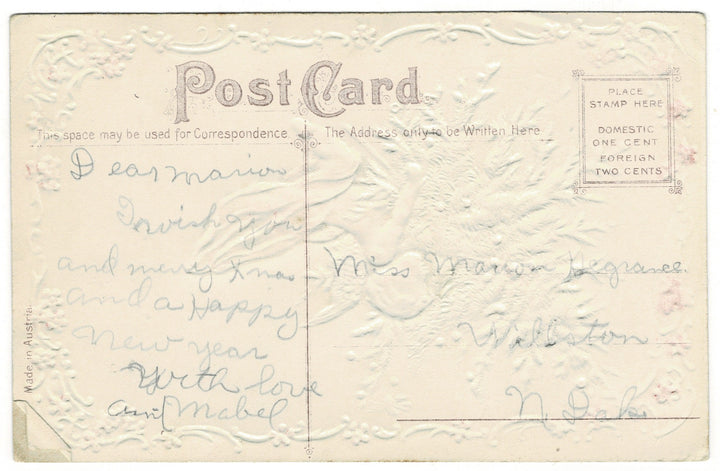 Post Card
This space may be used for Correspondence
The Address only to be Written Here
PLACE
STAMP HERE
DOMESTIC
ONE CENT
FOREIGN
TWO CENTS
Dear Marion
I wish you
and merry Xmas
and a Happy
New year
With love
Mabel
Miss Marion
Williston
N. Dak
Made in Austria